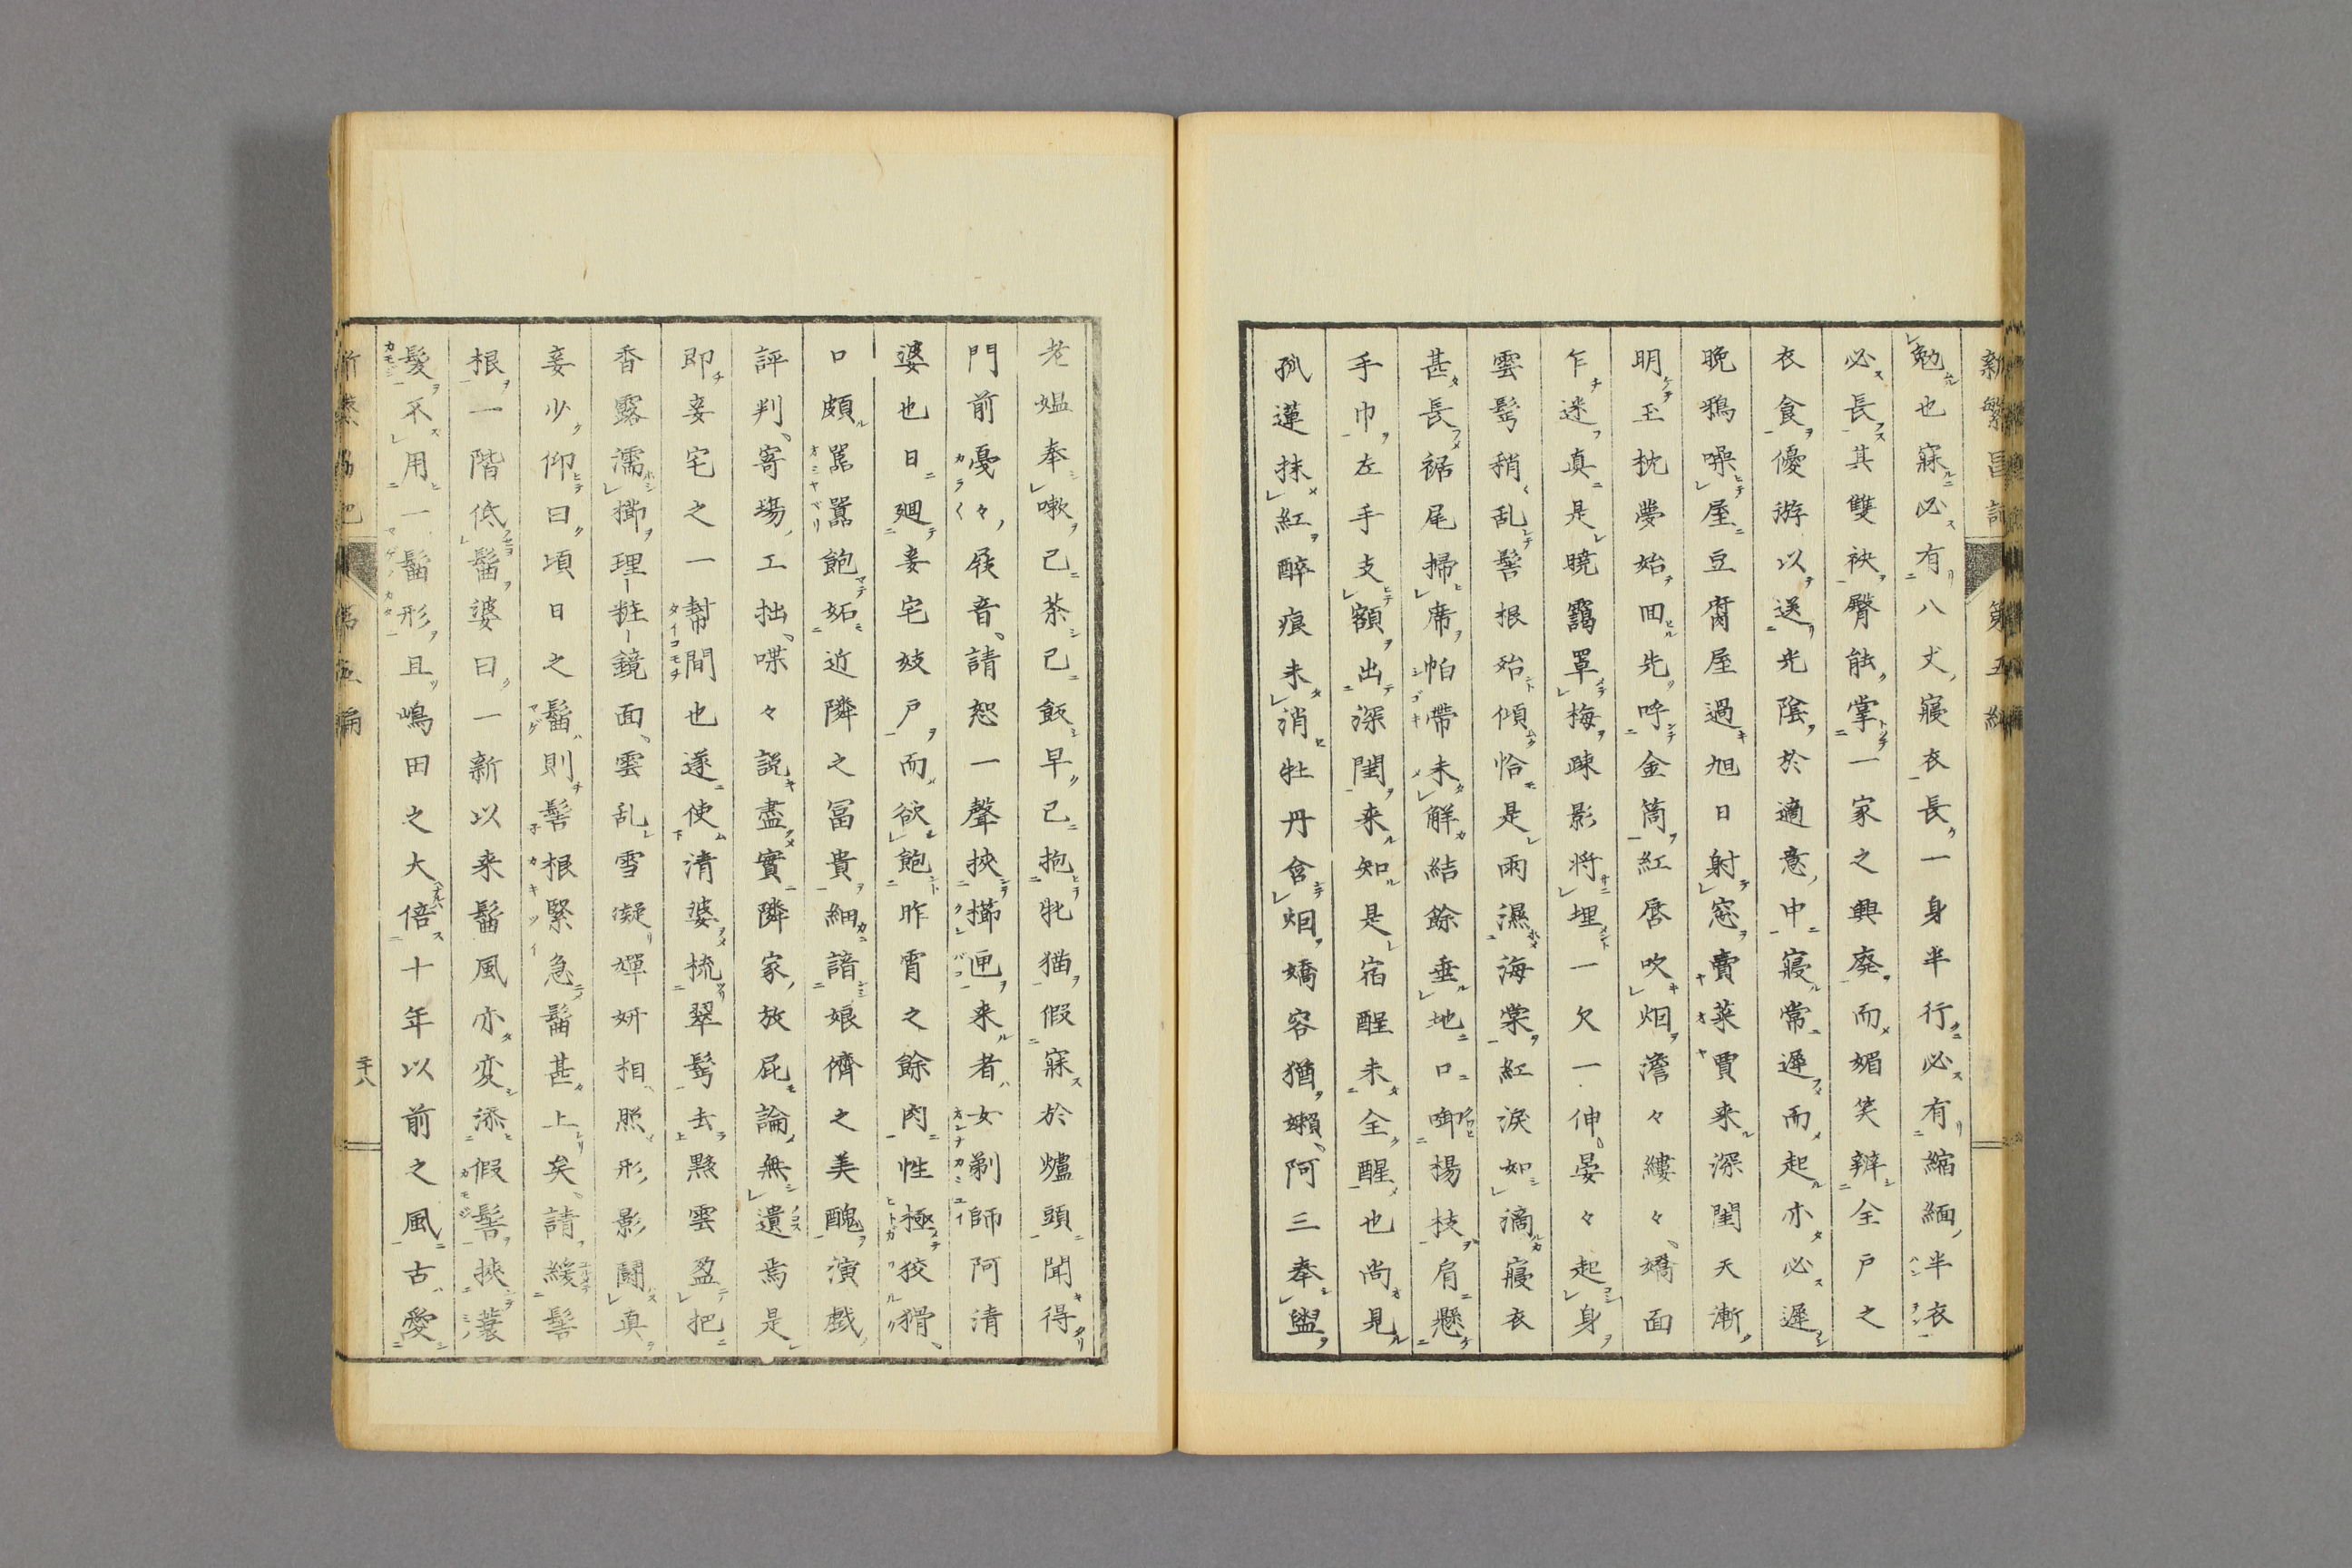 新繁昌記 第五編
勉也寐必有八丈寢衣長一身半行必有縮緬半衣
必長其雙袂臀能掌一家之興廃而媚笑辦全戸之
衣食優游以送光陰於適意中寢常遲而起亦必遲
晩鴉噪屋豆腐屋過旭日射窓賣菜賈来深閨天漸
明玉枕夢始回先呼金筒紅唇吹烟澹々縷々嬌面
乍迷真是曉靄罩梅疎影将埋一欠一伸晏々起身
雲髩稍乱髻根殆傾恰是雨濕海棠紅涙如滴寢衣
甚長裾尾掃席帕帶未解結餘垂地口啣楊枝肩懸
手巾左手支額出深閨来知是宿酲未全醒也尚見
孤蓮抹紅醉痕未消牡丹含烟嬌容猶嬾阿三奉盥
老媼奉嗽已茶已飯早已抱牝猫假寐於爐頭聞得
門前戞々屐音請恕一聲挾櫛匣来者女剃師阿清
婆也日廻妾宅妓戸而欲飽昨宵之餘肉性極狡猾
口頗詈囂飽妬近隣之冨貴細諳娘儕之美醜演戲
評判寄場工拙喋々説盡實隣家放屁論無遺焉是
即妾宅之一幇間也遂使清婆梳翠髩去黙雲盈把
香露濡櫛理粧鏡面雲乱雪凝嬋妍相照形影鬪真
妾少仰曰頃日之髷則髻根緊急髷甚上矣請緩髻
根一階低髷婆曰一新以来髷風亦変添假髻挾蓑
髪不用一髷形且嶋田之大倍十年以前之風古愛
新繁昌記 第五編 二十八